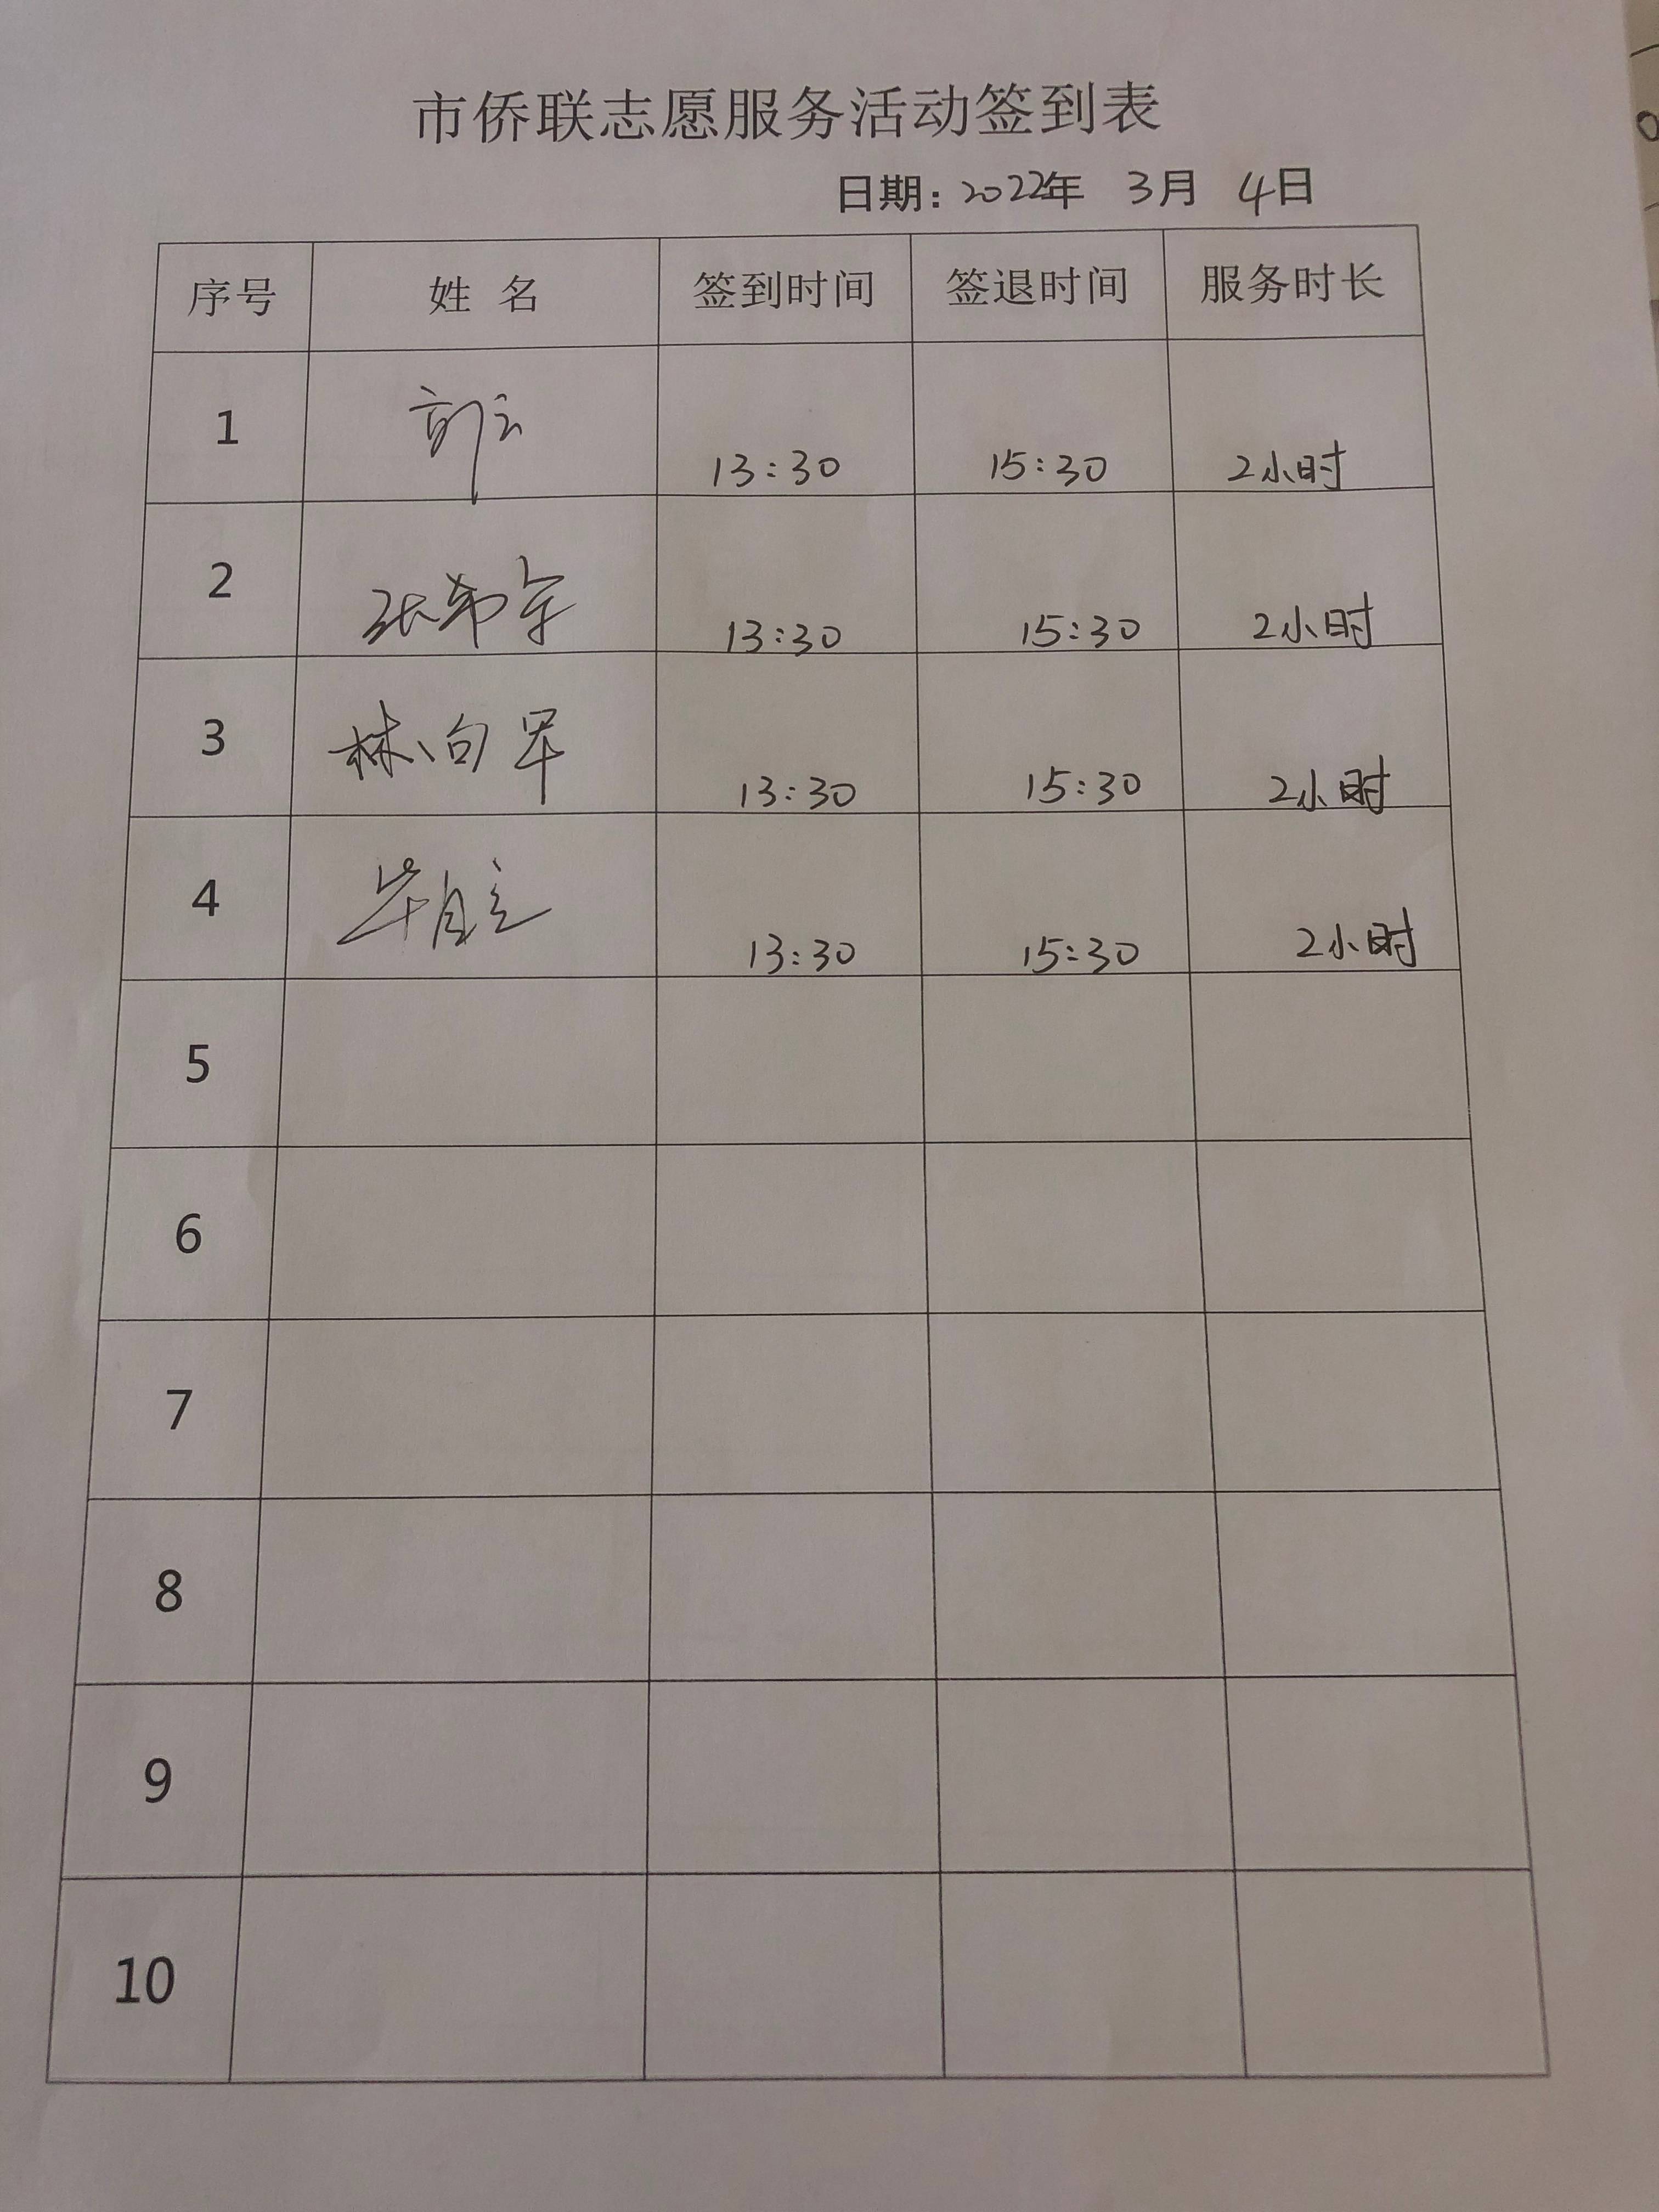 市侨联志愿服务活动签到表
日期: 2022年 3月 4日
序号 姓 名 签到时间 签退时间 服务时长
1 郭云 13:30 15:30 2小时
2 13:30 15:30 2小时
3 林向军 13:30 15:30 2小时
4 13:30 15:30 2小时
5
6
7
8
9
10